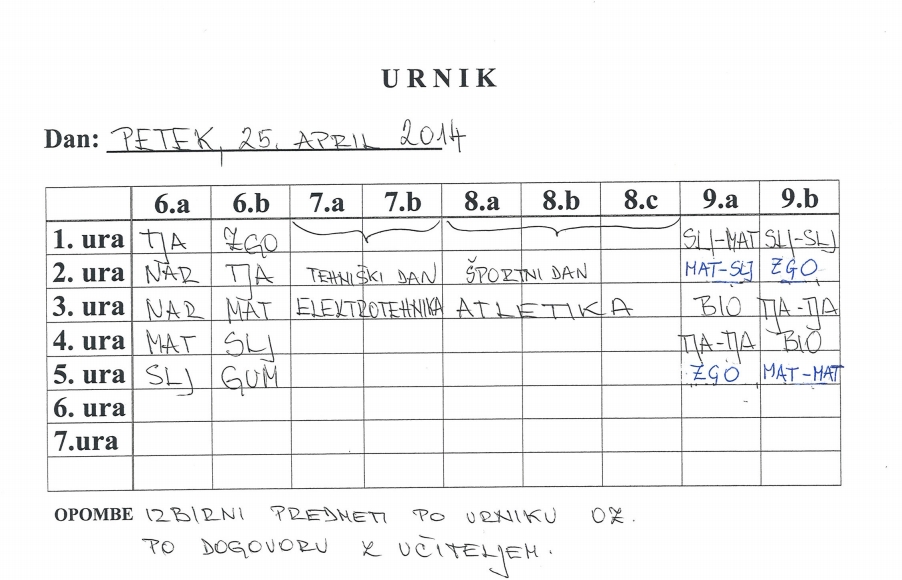 URNIK
Dan: PETEK, 25. APRIL 2014
6.a 6.b 7.a 7.b 8.a 8.b 8.c 9.a 9.b
1. ura TJA ZGO SLJ-MAT SLJ-SLJ
2. ura NAR TJA TEHNIŠKI DAN ŠPORTNI DAN MAT-SLJ ZGO
3. ura NAR MAT ELEKTROTEHNIKA ATLETIKA BIO TJA-TJA
4. ura MAT SLJ TJA-TJA BIO
5. ura SLJ GUM ZGO MAT-MAT
6. ura
7.ura
OPOMBE IZBIRNI PREDMETI PO URNIKU OZ.
PO DOGOVORU Z UČITELJEM.